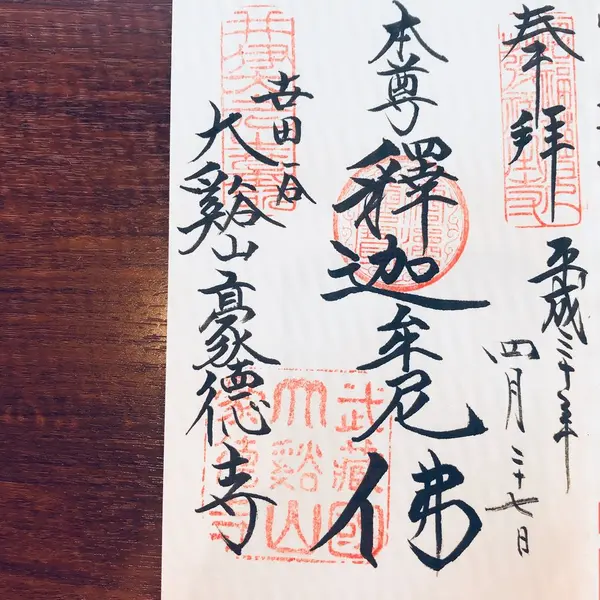 奉拝
平成三十年
四月二十七日
本尊
釋迦牟尼佛
世田谷
大谿山豪徳寺
武藏國
大谿山
豪德寺